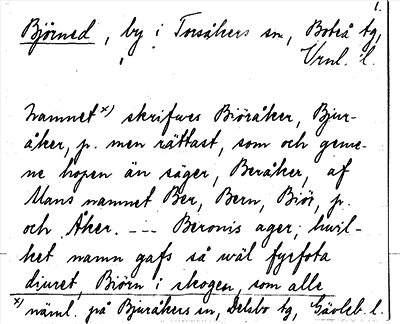 1.
Björned, by i Torsåkers sn, Boteå tg,
Vrnl. l.
Namnet x) skrifves Biöråker, Bjur-
åker, p. men rättast, som och geme-
ne hopen än säger, Beråker, af
Mans namnet Ber, Bern, Biör, p.
och Åker. --- Beronis ager; hwil-
ket namn gafs så wäl fyrfota
diuret, Biörn i skogen, som alle
x) näml. på Bjuråkers sn, Delsbo tg, Gävleb. l.